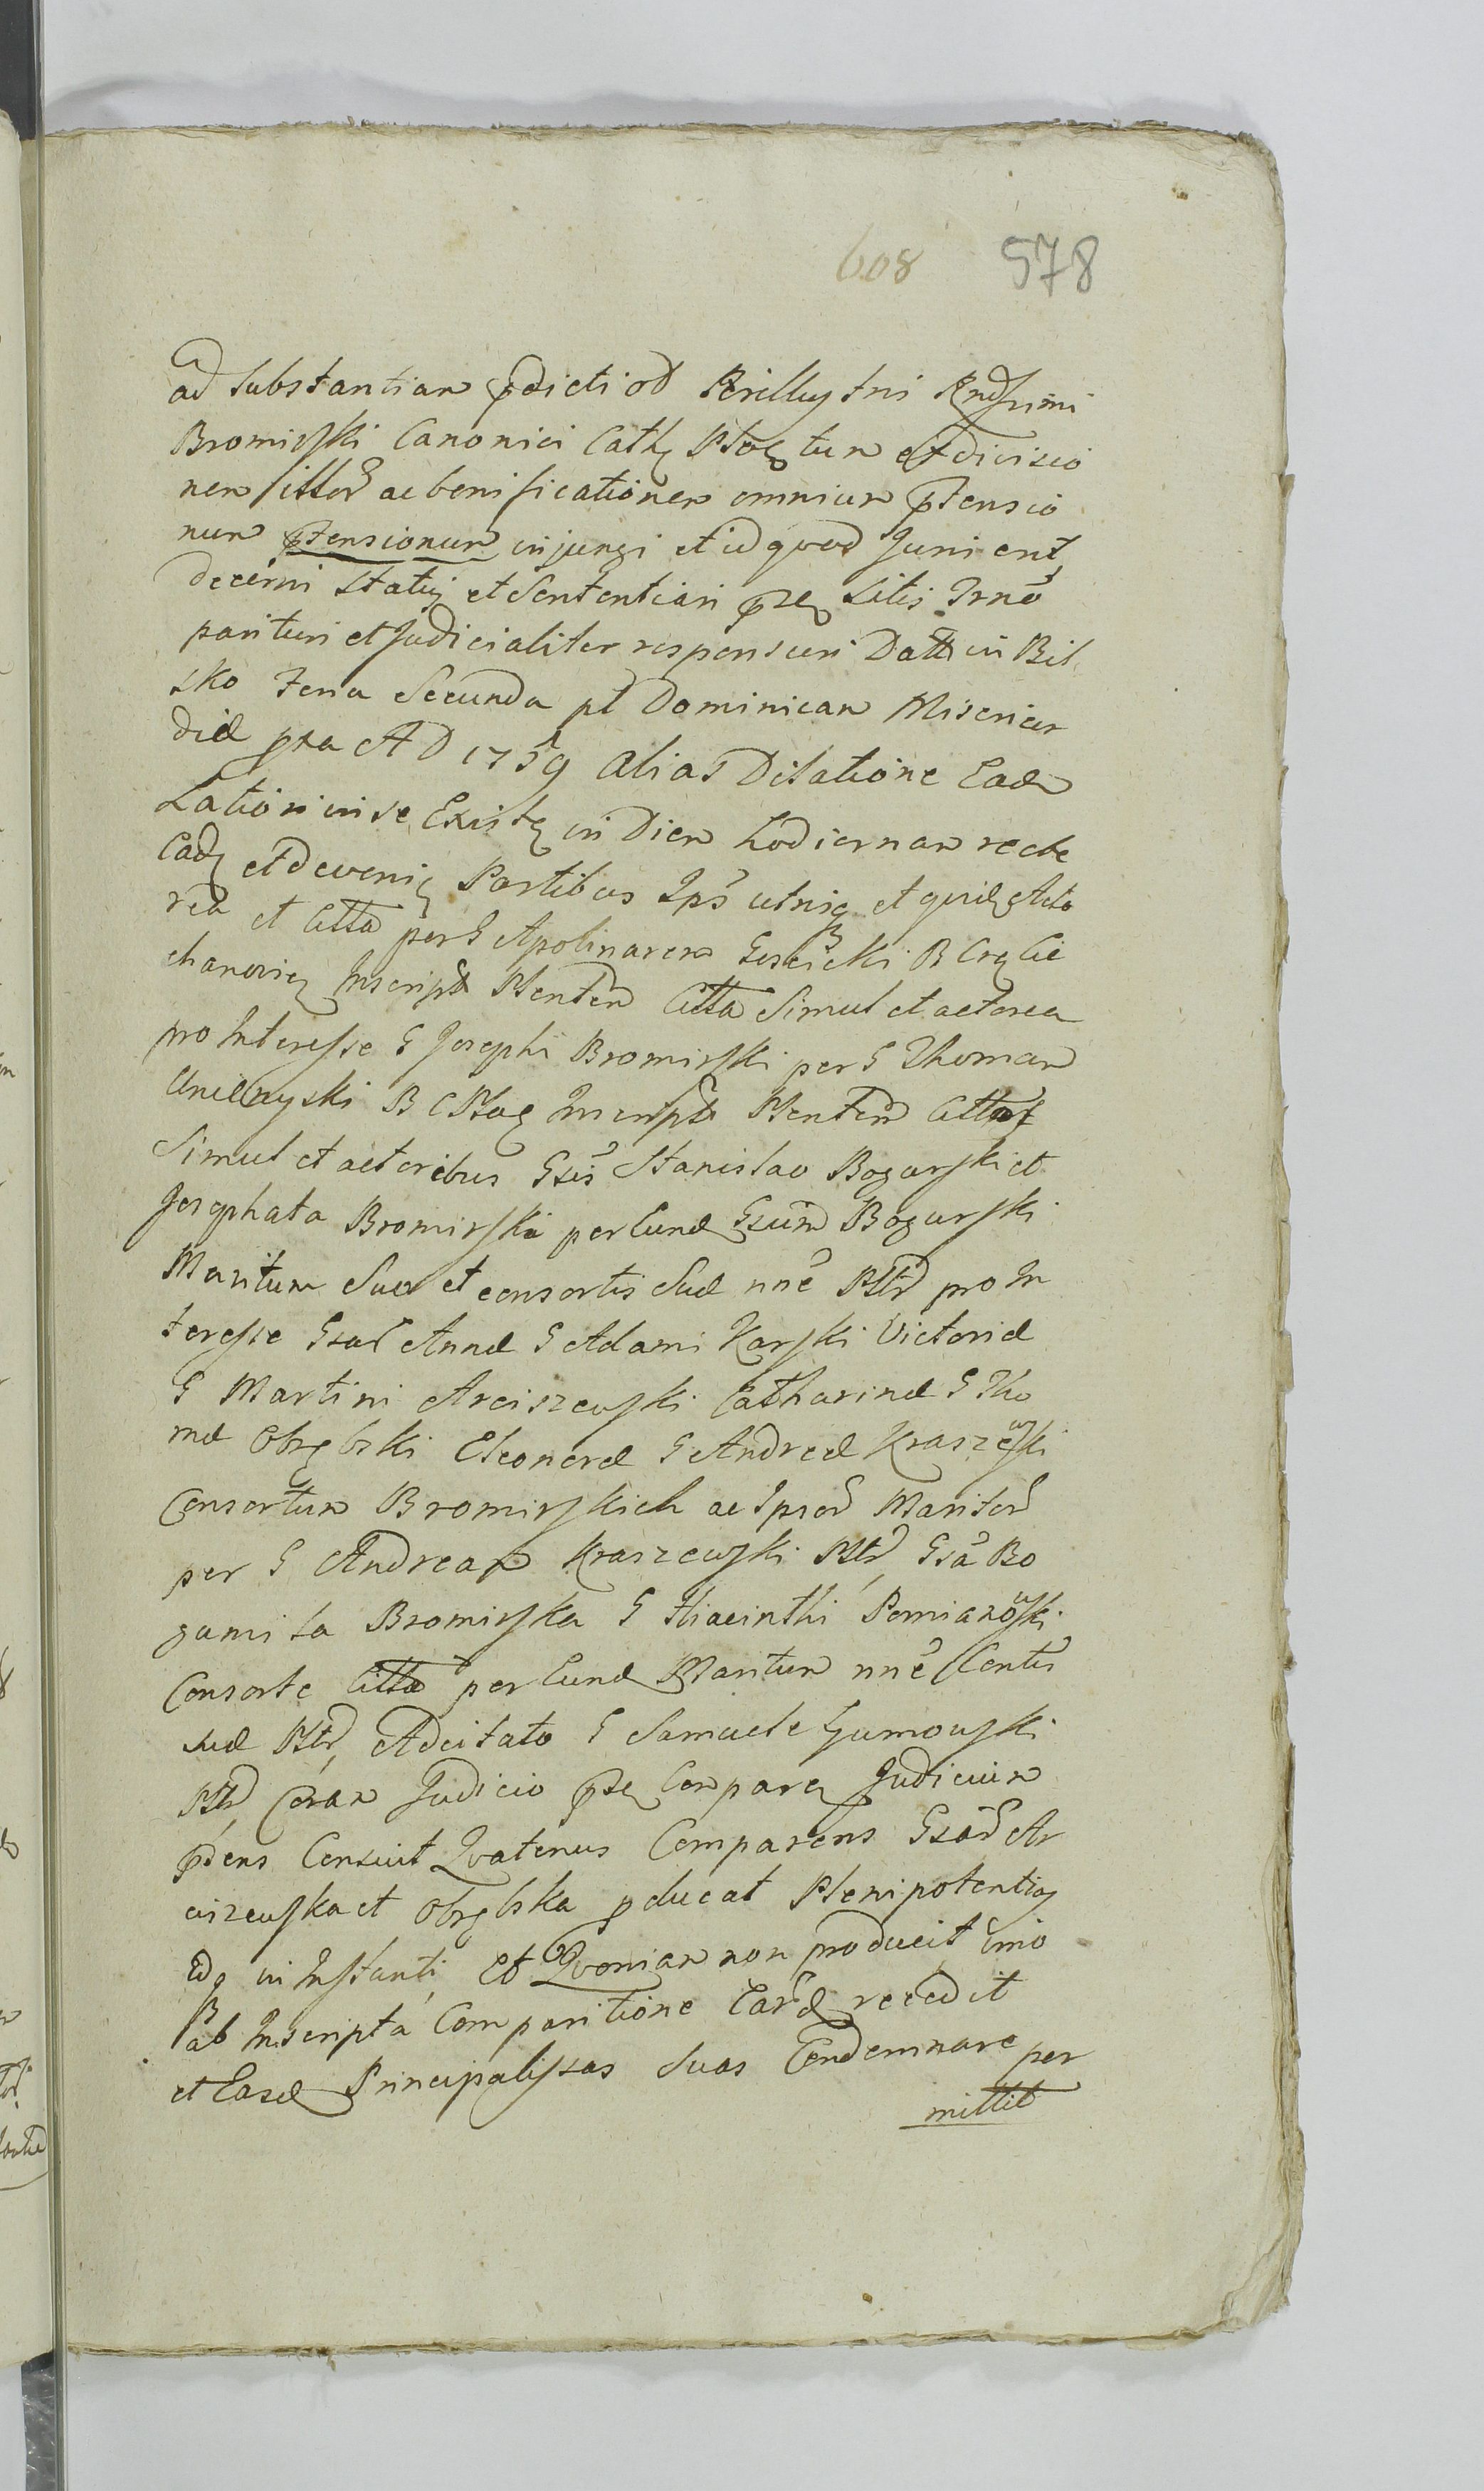 608 578
ad substantiam pdicti od Perillustri Rndssimi
Bromirski Canonici Cath Ploc tum et divisio
nem illor ac benificationem omnium ptensio
num ptensionum injungi et id quod Juri erit
decerni statuj et sententiari pze Litis Trno
parituri et Judicialiter responsuri Datt in Biel
sko Feria Secunda pt Dominicam Misericor
diæ pxa A D 1759 alias Dilatione ead
Lationi in se Existe in Diem hodiernam recte
Cad et deveni Partibus Ips utrisq et quid Acto
rea et Citta per G Apolinarem Goscicki B Crg Cie
chanovie Inscript Plentem Citta Simul et actorea
pro Interesse G Josephi Bromirski per G Thomam
B C Ploc Inscript Plentem Cittat
Simul et actoribus Gsis Stanislao Bogurski et
Josephata Bromirska per Eund Gsum Bogurski
Maritum Suu et consortis Suæ nne Pltr pro In
teresse Gsar Annæ G Adami Karski Victoriæ
G Martini Arciszewski Catharinæ G Tho
mæ Obrębski Eleonoræ G Andreæ Kraszewski
Consortum Bromirskich ac Ipsor Maritor
per G Andream Kraszewski Pltr Gsa Bo
gumila Bromirska G Hiacinthi Pomianowski
Consorte Citta per Eund Maritum nne Contis
suæ Pltr Adcitato G Samuele Gumowski
Pltr Coram Judicio pze Compare Judicium
pdens Censuit Quatenus Comparens Gsar Ar
ciszewska et Obrębska pducat Plenipotentia
idq in Instanti, Et Quoniam non producit imo
ab Inscripta Comparitione Eard recedit
et Easd Principalissas Suas Condemnare per
mittit